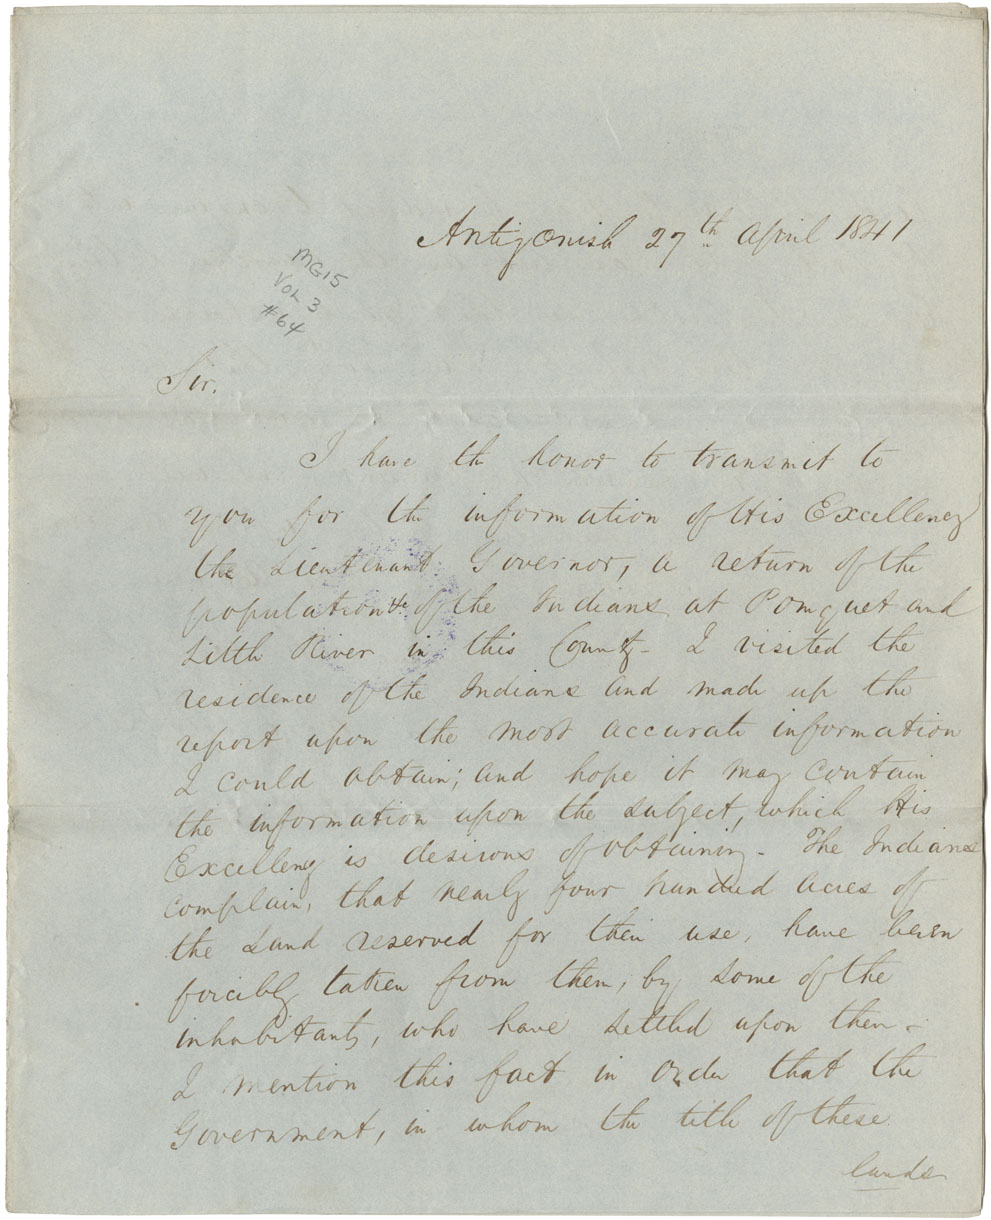 Antigonish 27th April 1841
MG15
Vol 3
#64
Sir.
I have the honor to transmit to
you for the information of His Excellency
the Lieutenant Governor, a return of the
population &c of the Indians at Pomquet and
Little River in this County - I visited the
residence of the Indians and made up the
report upon the most accurate information
I could obtain; and hope it may contain
the information upon the subject, which His
Excellency is desirous of obtaining - The Indians
complain, that nearly four hundred acres of
the Land reserved for their use, have been
forcibly taken from them, by some of the
inhabitants, who have settled upon them -
I mention this fact in order that the
Government, in whom the title of these
lands